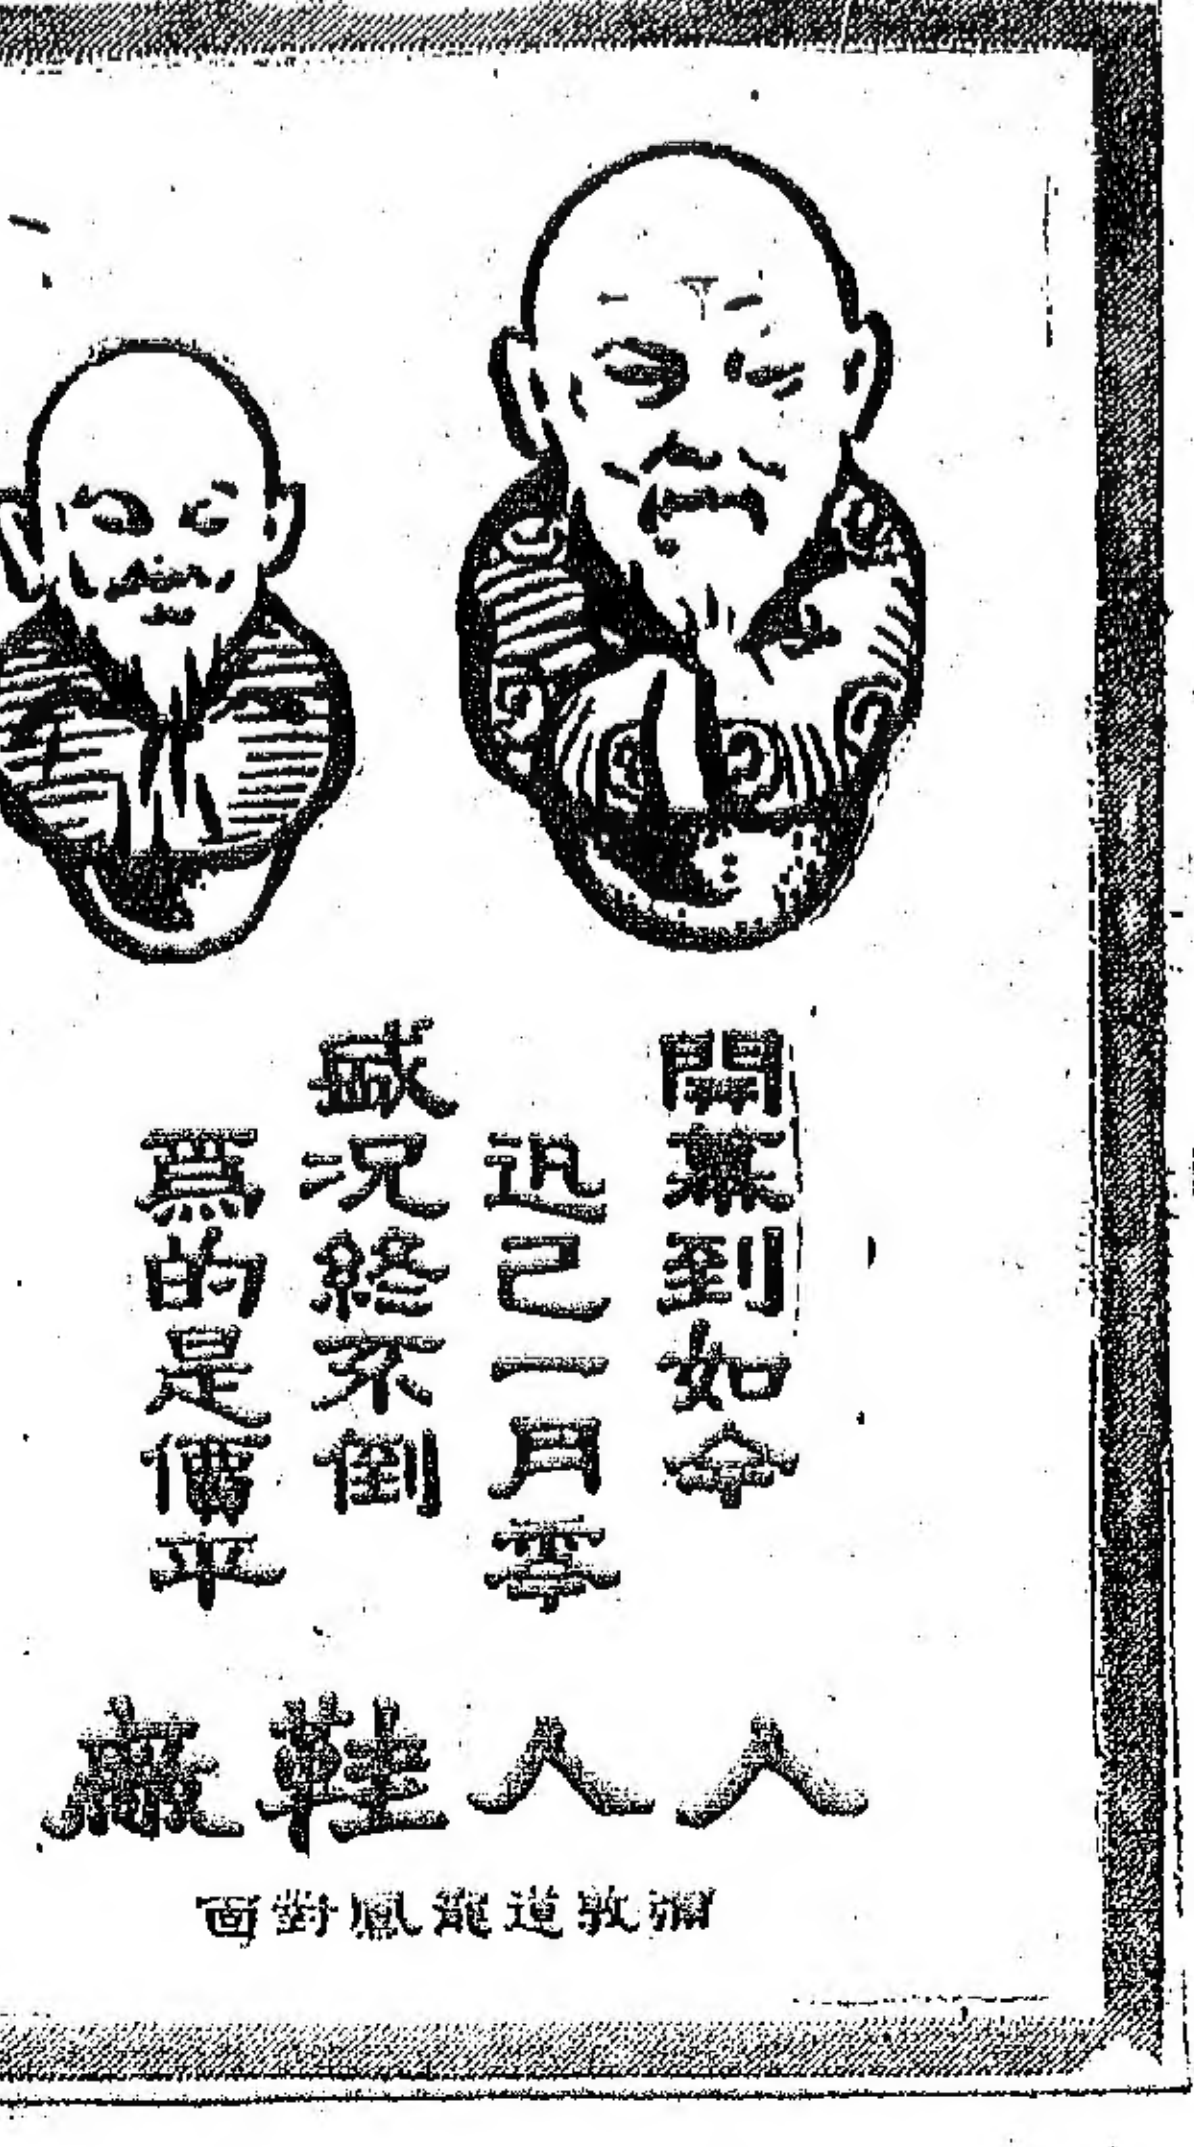 開幕到如今
迅已一月零
盛况終不倒
為的是價平
人人鞋廠
彌敦道龍鳳對面